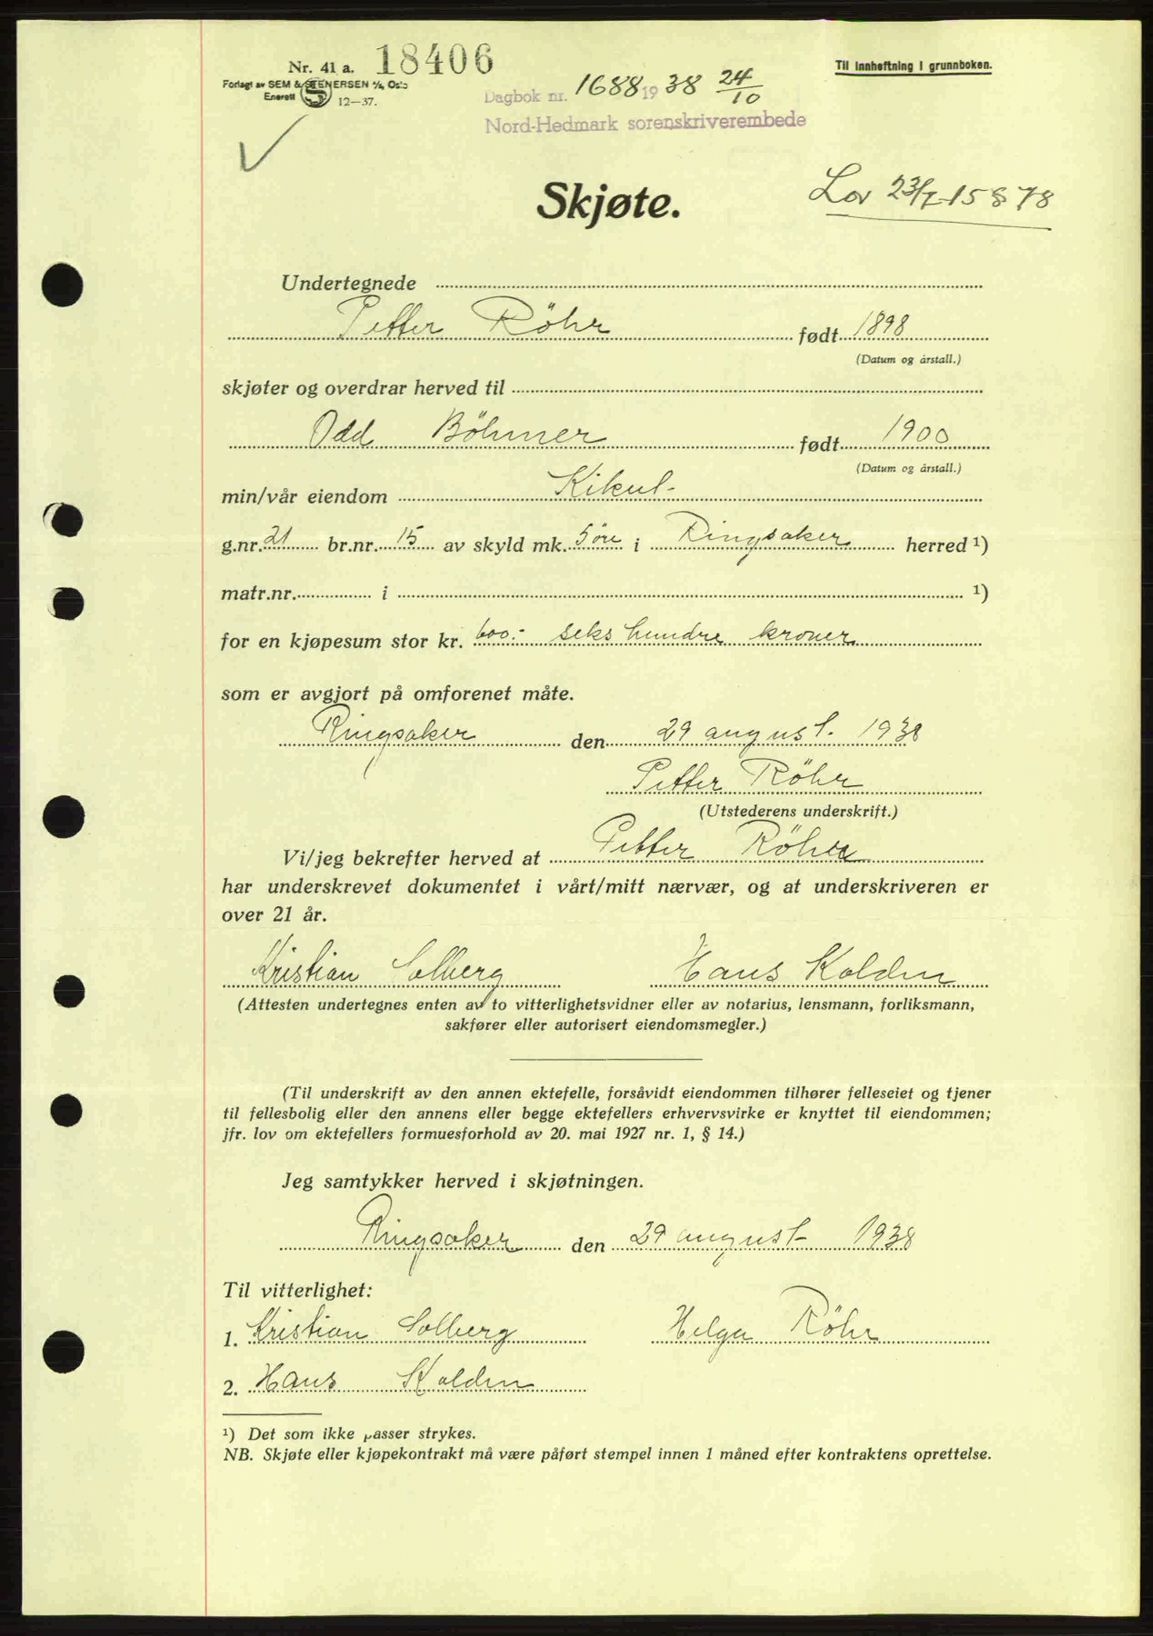 Nr. 41 a. 18406
Til innheftning i grunnboken.
Forlagt av SEM & STENERSEN A/S, Oslo
Enerett 12—37.
Dagbok nr. 1688 1938 24/10
Nord-Hedmark sorenskriverembede
Skjøte.
Lov 23/7-15 § 78
Undertegnede
Petter Röhr født 1898
(Datum og årstall.)
skjøter og overdrar herved til
Odd Böhmer født 1900
(Datum og årstall.)
min/vår eiendom Kikut
g.nr. 21 br.nr. 15 av skyld mk. 5 øre i Ringsaker herred ¹)
matr.nr. i ¹)
for en kjøpesum stor kr. 600.- seks hundre kroner
som er avgjort på omforenet måte.
Ringsaker den 29 august 1938
Petter Röhr
(Utstederens underskrift.)
Vi/jeg bekrefter herved at Petter Röhr
har underskrevet dokumentet i vårt/mitt nærvær, og at underskriveren er
over 21 år.
Kristian Solberg Hans Kolden
(Attesten undertegnes enten av to vitterlighetsvidner eller av notarius, lensmann, forliksmann,
sakfører eller autorisert eiendomsmegler.)
(Til underskrift av den annen ektefelle, forsåvidt eiendommen tilhører felleseiet og tjener
til fellesbolig eller den annens eller begge ektefellers erhvervsvirke er knyttet til eiendommen;
jfr. lov om ektefellers formuesforhold av 20. mai 1927 nr. 1, § 14.)
Jeg samtykker herved i skjøtningen.
Ringsaker den 29 august 1938
Til vitterlighet:
1. Kristian Solberg Helga Röhr
2. Hans Kolden
¹) Det som ikke passer strykes.
NB. Skjøte eller kjøpekontrakt må være påført stempel innen 1 måned efter kontraktens oprettelse.